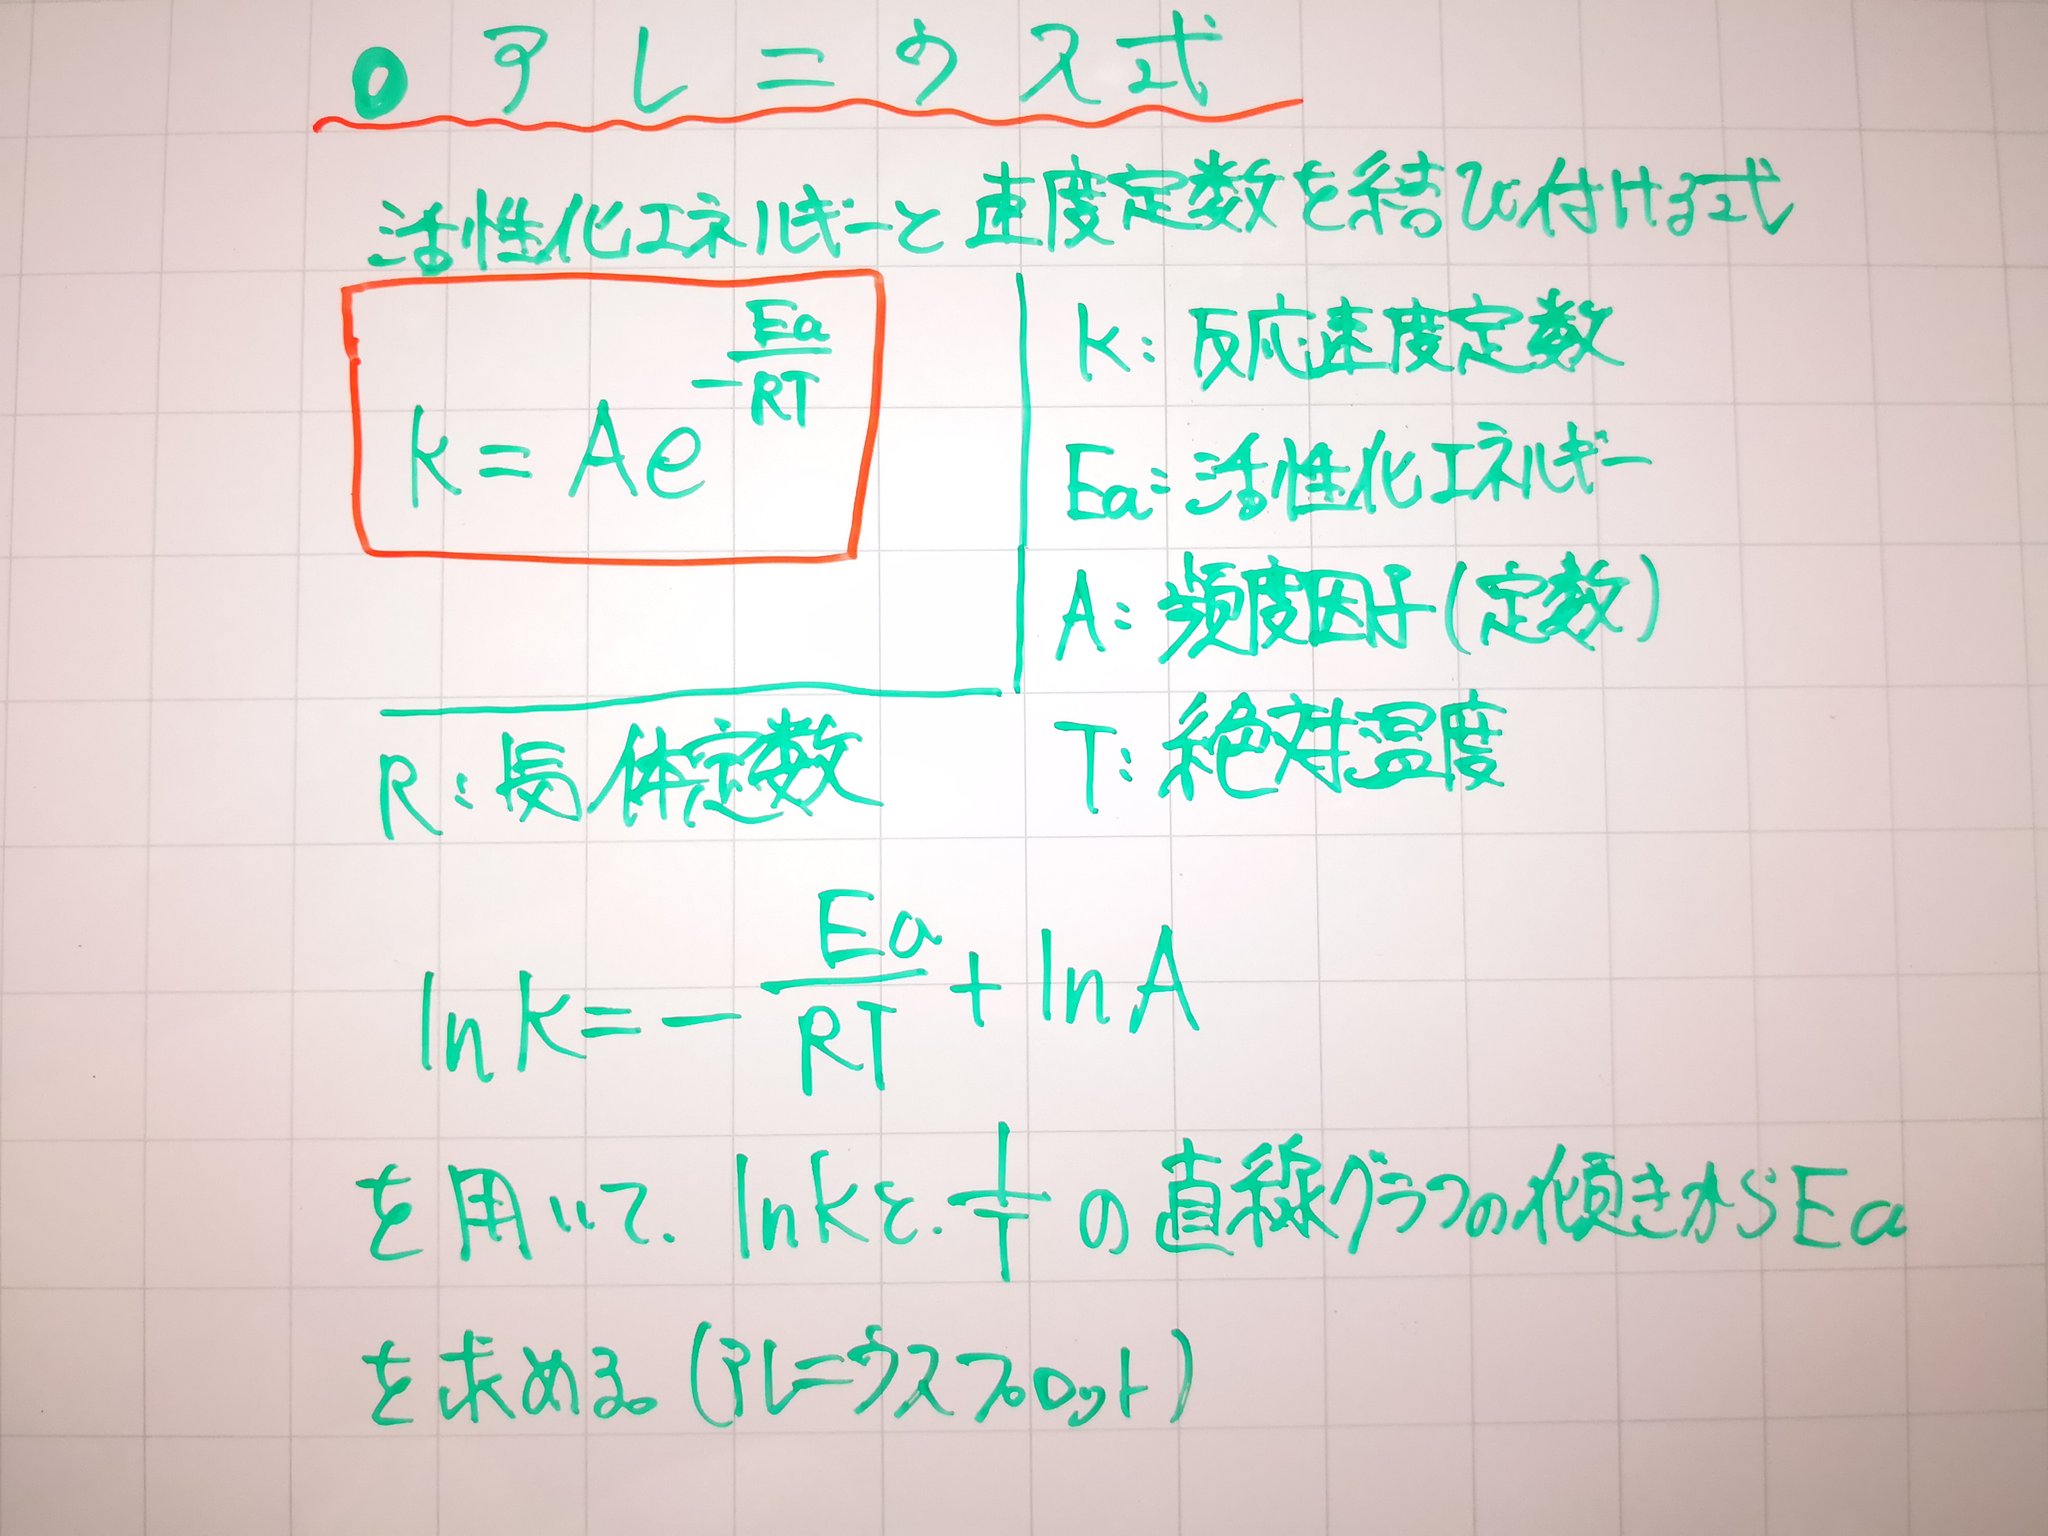 ● アレニウス式
活性化エネルギーと速度定数を結び付ける式
k = Ae^{-Ea/RT}
k: 反応速度定数
Ea: 活性化エネルギー
A: 頻度因子(定数)
T: 絶対温度
R: 体定数
ln k = - Ea/RT + ln A
を用いて. ln k と. 1/T の直線グラフの傾きから Ea
を求める。(アレニウスプロット)